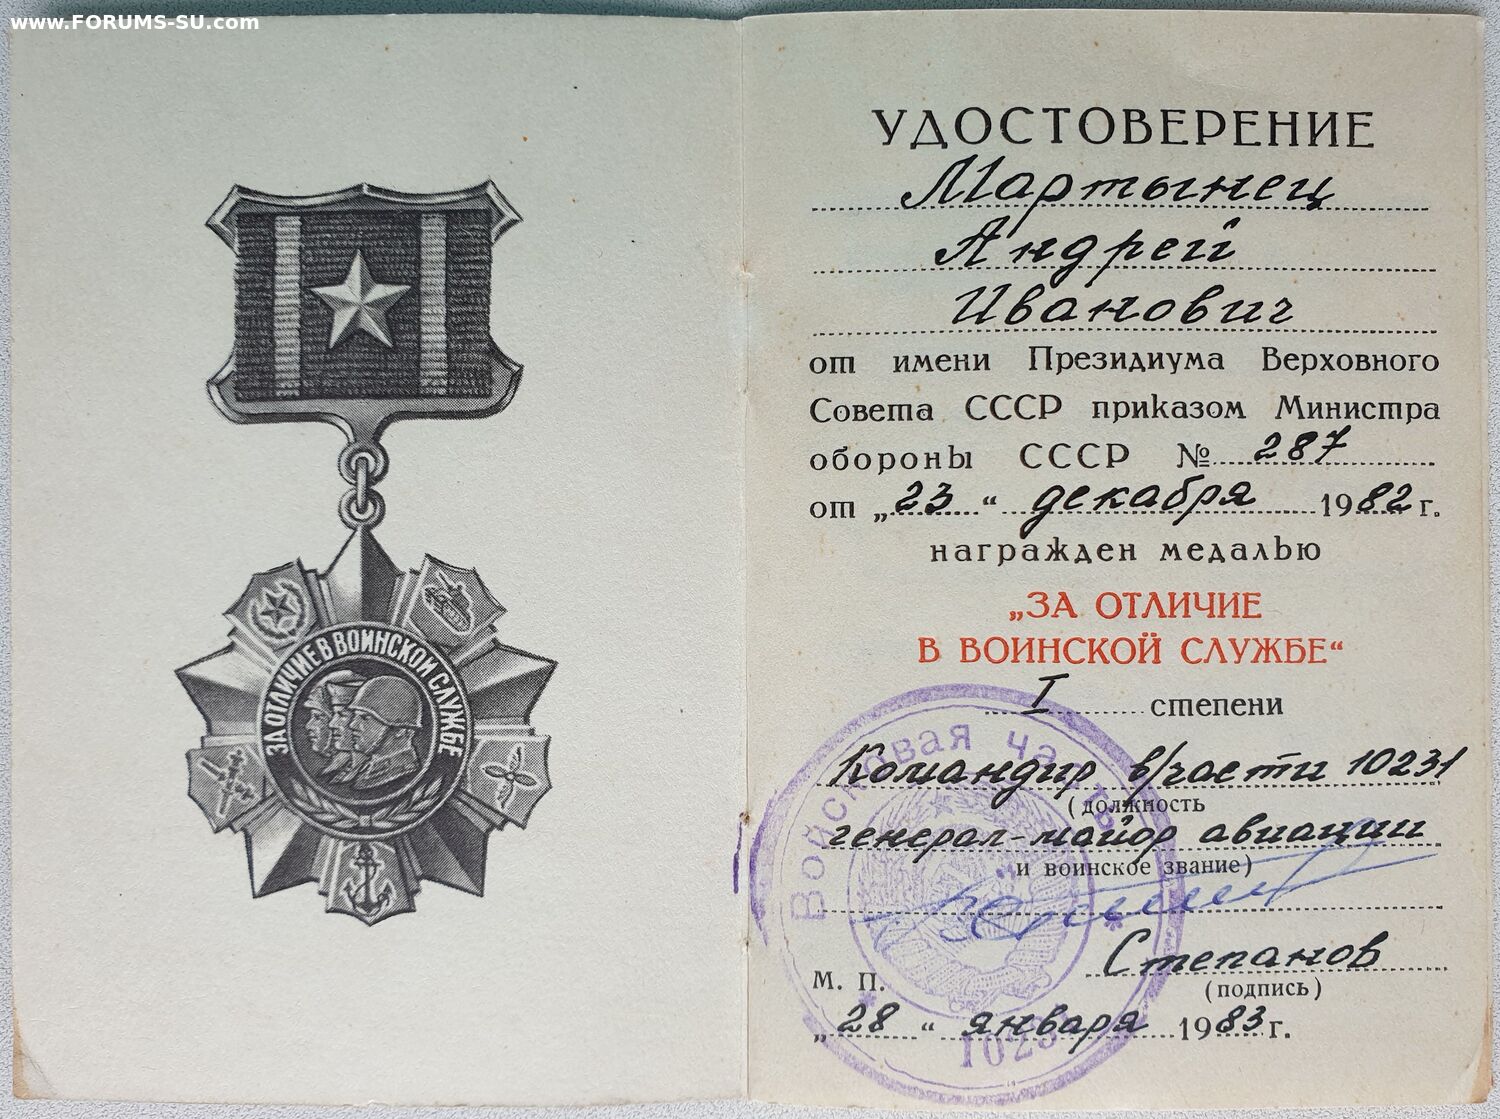 www.FORUMS-SU.com
ЗА ОТЛИЧИЕ В ВОИНСКОЙ СЛУЖБЕ
УДОСТОВЕРЕНИЕ
Мартынец
Андрей
Иванович
от имени Президиума Верховного
Совета СССР приказом Министра
обороны СССР № 287
от „23“ декабря 1982 г.
награжден медалью
„ЗА ОТЛИЧИЕ
В ВОИНСКОЙ СЛУЖБЕ“
I степени
Командир в/части 10231
(должность
генерал-майор авиации
и воинское звание)
Степанов
М. П.
(подпись)
„28“ января 1983 г.
Войсковая часть
10231